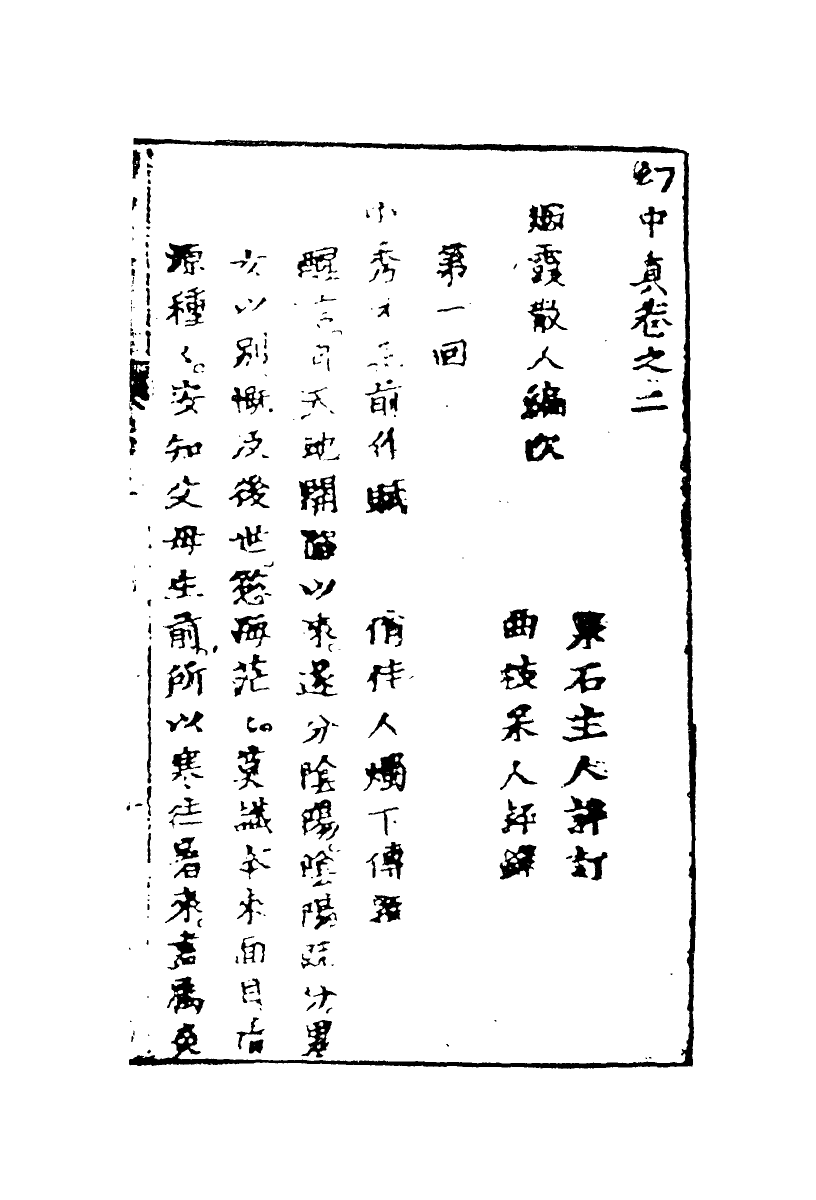 幻中真卷之二
烟霞散人編次
泉石主人評訂
曲枝呆人評繹
第一回
小秀才 前作賦 俏佳人燭下傳
醒言曰天地開闢以來遂分陰陽陰陽既分男
女以別慨夫後世慾海茫〻莫識本來面目
源種〻安知父母生前所以寒往暑來